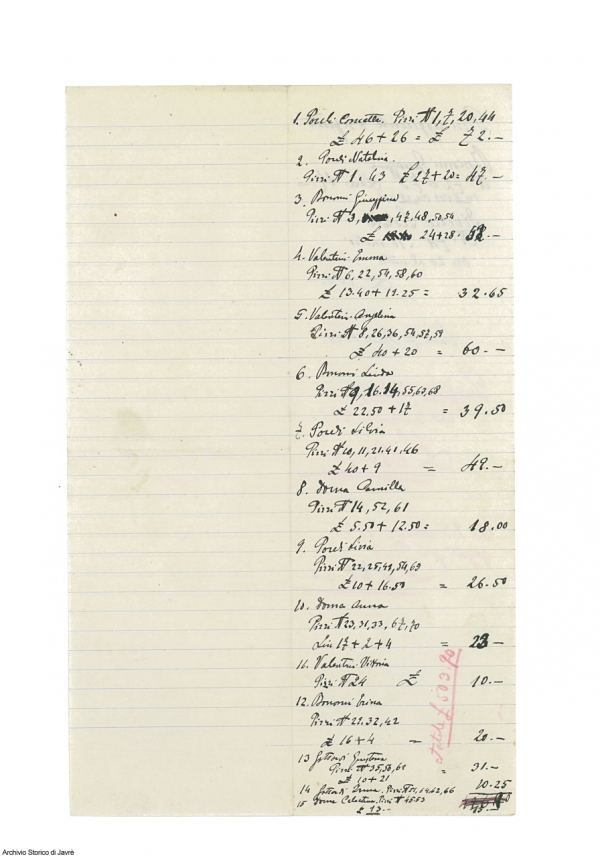 1. Pouli Concetta. Pizzi N 1, 7, 20, 44
£ 46 + 26 = £ 72.—
2. Poudi Natalina.
Pizzi N 1. 43 £ 27 + 20 = 47.—
3. Bonomi Giuseppina
Pizzi N 3, 47, 48, 50, 54
£ 24 + 28. 52.—
4. Valentini Emma
Pizzi N 6, 22, 54, 58, 60
£ 13.40 + 19.25 = 32.65
5. Valentini Angelina
Pizzi N 8, 26, 36, 54, 57, 59
£ 40 + 20 = 60.—
6. Bonomi Linda
Pizzi N 9, 16. 14, 55, 63, 68
£ 22.50 + 17 = 39.50
7. Poudi Silvia
Pizzi N 10, 11, 21. 41. 46
£ 40 + 9 = 49.—
8. Dorna Camilla
Pizzi N 14, 52, 61
£ 5.50 + 12.50 = 18.00
9. Poudi Livia
Pizzi N 22, 25, 49, 54, 63
£ 10 + 16.50 = 26.50
10. Dorna Anna
Pizzi N 23, 31, 33, 67, 70
Lire 17 + 2 + 4 = 23—
11. Valentini Vittoria
Pizzi N 24 £ 10.—
12. Bonomi Erina
Pizzi N 29. 32, 42
£ 16 + 4 = 20.—
13 Giustina
Pizzi N 35, 50, 62 = 31.—
£ 10 + 21
14 Emma. Pizzi N 51, 59, 62, 66 10.25
15 Dorna Celestina. Pizzi N 45 53
£ 13.—
Totale £ 503.90
Archivio Storico di Javrè